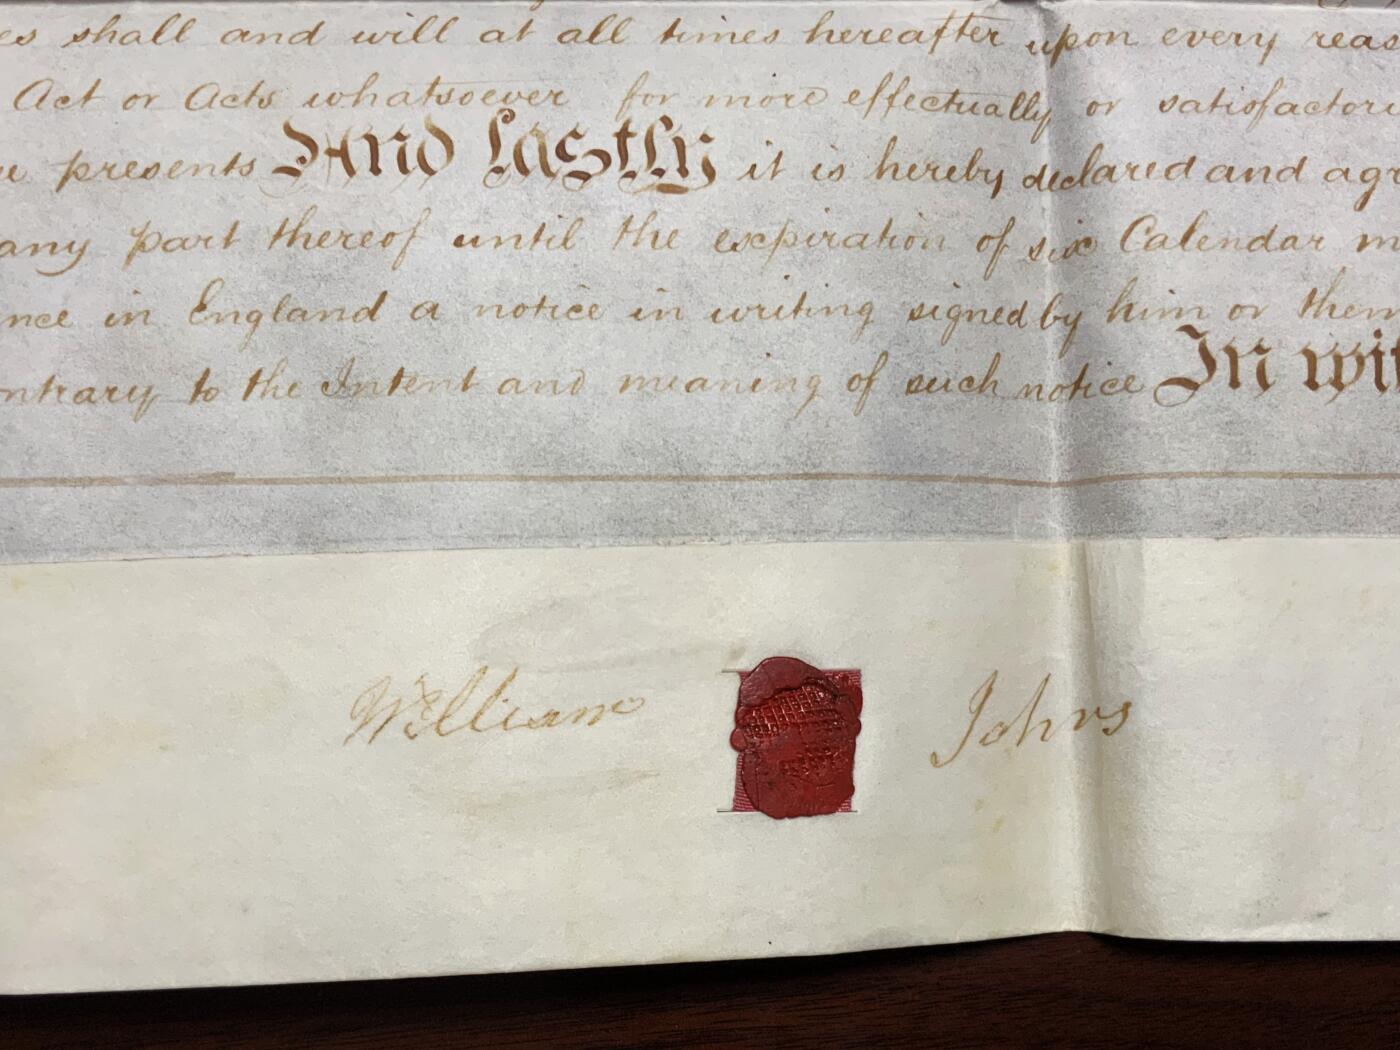 es shall and will at all times hereafter upon every reas
Act or Acts whatsoever for more effectually or satisfactor
presents And Lastly it is hereby declared and agr
any part thereof until the expiration of six Calendar m
nce in England a notice in writing signed by him or them
ontrary to the Intent and meaning of such notice In wit
William Johns